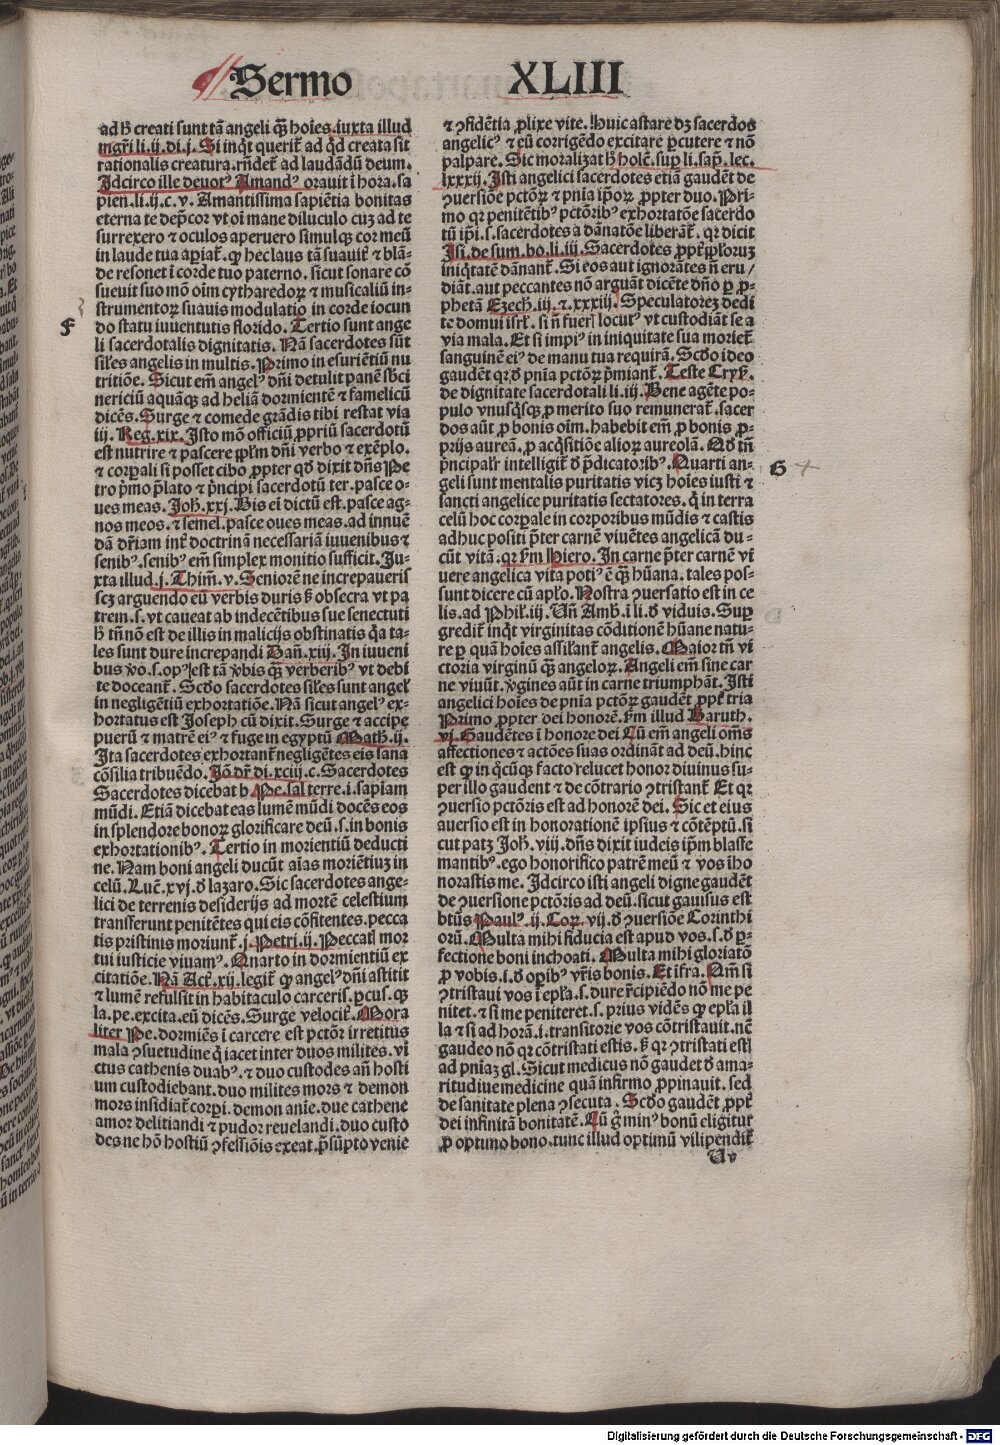 Sermo XLIII
ad hͦ creati sunt tā angeli qͣ̃ hoīes. iuxta illud
mgr̄i li. ij. di. j. Si inqͥt querit᷑ ad qͥd creata sit
rationalis creatura. rn̄det᷑ ad laudādū deum.
Idcirco ille deuotꝰ Amandꝰ orauit ī hora. sa
pien. li. ij. c. v. Amantissima sapiētia bonitas
eterna te dep̄cor vt oī mane diluculo cuꝫ ad te
surrexero ⁊ oculos aperuero simulqꝫ cor meū
in laude tua aꝑiat᷑. qꝫ hec laus tā suauit᷑ ⁊ blā⸗
de resonet ī corde tuo paterno. sicut sonare cō
sueuit suo mō oīm cytharedoꝝ ⁊ musicaliū in⸗
strumentoꝝ suauis modulatio in corde iocun
do statu iuuentutis florido. Tertio sunt ange
F
li sacerdotalis dignitatis. Nā sacerdotes sūt
sil̄es angelis in multis. Primo in esurientiū nu
tritiōe. Sicut em̄ angelꝰ dn̄i detulit panē sbͥci
nericiū aquāqꝫ ad heliā dormientē ⁊ famelicū
dicēs. Surge ⁊ comede grādis tibi restat via
iij. Reg. xix. Isto mō officiū ꝓpriū sacerdotū
est nutrire ⁊ pascere pp̄lm dn̄i verbo ⁊ exēplo.
⁊ corꝑali si posset cibo ꝓpter qd̄ dixit dn̄s Pe
tro pͥmo p̄lato ⁊ pͥncipi sacerdotū ter. pasce o⸗
ues meas. Joh̄. xxj. Bis ei dictū est. pasce ag⸗
nos meos. ⁊ semel. pasce oues meas. ad innuē
dā dr̄iam int᷑ doctrinā necessariā iuuenibus ⁊
senibꝰ. senibꝰ em̄ simplex monitio sufficit. Ju⸗
xta illud. j. Thim̄. v. Seniorē ne increpaueris
scꝫ arguendo eū verbis duris sꝫ obsecra vt pa
trem. s. vt caueat ab indecētibus sue senectuti
hͦ tn̄ nō est de illis in malicijs obstinatis qͥa ta⸗
les sunt dure increpandi Dan̄. xiij. In iuueni
bus ꝟo. s. opꝰ est tā ꝟbis qͣ̃ verberibꝰ vt debi
te doceant᷑. Scd̓o sacerdotes sil̄es sunt angel̓
in negligētiū exhortatiōe. Nā sicut angelꝰ ex⸗
hortatus est Joseph cū dixit. Surge ⁊ accipe
puerū ⁊ matrē eiꝰ ⁊ fuge in egyptū Math̄. ij.
Ita sacerdotes exhortant᷑ negligētes eis sana
cōsilia tribuēdo. Iō dr̄ di. xciij. c. Sacerdotes
Sacerdotes dicebat b. Pe. sal terre. i. sapiam
mūdi. Etiā dicebat eas lumē mūdi docēs eos
in splendore bonoꝝ glorificare deū. s. in bonis
exhortationibꝰ. Tertio in morientiū deducti
ne. Nam boni angeli ducūt aīas moriētiuꝫ in
celū. Luē. xvj. d̓ lazaro. Sic sacerdotes ange⸗
lici de terrenis desiderijs ad mortē celestium
transferunt penitētes qui eis cōfitentes. pecca
tis pristinis moriunt᷑. j. Petri. ij. Peccatꝭ mor
tui iusticie viuamꝰ. Quarto in dormientiū ex
citatiōe. Nā Act᷑. xij. legit᷑ ꝙ angelꝰ dn̄i astitit
⁊ lumē refulsit in habitaculo carceris. ꝑcus. qꝫ
la. pe. excita. eū dicēs. Surge velocit᷑. Mora
liter Pe. dormiēs ī carcere est pctōr irretitus
mala ꝯsuetudine qͥ iacet inter duos milites. vī
ctus cathenis duabꝰ. ⁊ duo custodes an̄ hosti
um custodiebant. duo milites mors ⁊ demon
mors insidiat᷑ corꝑi. demon anīe. due cathene
amor delitiandi ⁊ pudor reuelandi. duo custo
des ne hō hostiū ꝯfessiōis exeat. p̄sūpto venie
⁊ ꝯfidētia ꝓlixe vite. Huic astare dꝫ sacerdos
angelicꝰ ⁊ eū corrigēdo excitare ꝑcutere ⁊ nō
palpare. Sic moralizat hͦ holē. suꝑ li. sap̄. lec.
lxxxij. Isti angelici sacerdotes etiā gaudēt de
ꝯuersiōe pctōꝝ ⁊ pn̄ia ip̄oꝝ ꝓpter duo. Pri⸗
mo qꝛ penitētibꝰ pctōribꝰ exhortatōe sacerdo
tū ip̄i. s. sacerdotes a dānatōe liberāt᷑. qꝛ dicit
Isi. de sum. bo. li. iij. Sacerdotes ꝓpt᷑ ip̄loꝝ
iniqͥtatē dānant᷑. Si eos aut ignorātes n̄ eru/
diāt. aut peccantes nō arguāt dicēte dn̄o ꝑ ꝓ⸗
phetā Ezech̄. iij. ⁊. xxxiij. Speculatoreꝫ dedi
te domui isrl̓. si n̄ fuerꝭ locutꝰ vt custodiāt se a
via mala. Et si impiꝰ in iniquitate sua moriet᷑
sanguinē eiꝰ de manu tua requirā. Scd̓o ideo
gaudēt qꝛ d̓ pn̄ia pctōꝝ p̄miant᷑. Teste Cryſ̓.
de dignitate sacerdotali li. iij. Bene agēte po⸗
pulo vnusqͥsqꝫ ꝓ merito suo remunerat᷑. sacer
dos aūt ꝓ bonis oīm. habebit em̄ ꝓ bonis ꝓ⸗
prijs aureā. ꝓ acqͥsitiōe alioꝝ aureolā. Qd̄ tn̄
pͥncipalr̄ intelligit᷑ d̓ p̄dicatoribꝰ. Quarti an⸗
G
geli sunt mentalis puritatis vicꝫ hoīes iusti ⁊
sancti angelice puritatis sectatores. qͥ in terra
celū hoc corꝑale in corporibus mūdis ⁊ castis
adhuc positi p̄ter carnē viuētes angelicā du⸗
cūt vitā. qꝛ ẜm Hiero. In carne p̄ter carnē vi
uere angelica vita potiꝰ ē qͣ̃ hūana. tales pos⸗
sunt dicere cū ap̄lo. Nostra ꝯuersatio est in ce
lis. ad Phil̓. iij. Un̄ Amb̄. ī li. d̓ viduis. Supͣ
gredit᷑ inqͥt virginitas cōditionē hūane natu⸗
re ꝑ quā hoīes assilant᷑ angelis. Maior tn̄ vi
ctoria virginū qͣ̃ angeloꝝ. Angeli em̄ sine car
ne viuūt. ꝟgines aūt in carne triumphāt. Isti
angelici hoīes de pn̄ia pctōꝝ gaudēt ꝓpt᷑ tria
Primo ꝓpter dei honorē. ẜm illud Baruth.
vj. Gaudētes ī honore dei Cū em̄ angeli om̄s
affectiones ⁊ actōes suas ordināt ad deū. hinc
est ꝙ in qͥcūqꝫ facto relucet honor diuinus su⸗
per illo gaudent ⁊ de cōtrario ꝯtristant᷑ Et qꝛ
ꝯuersio pctōris est ad honorē dei. Sic et eius
auersio est in honorationē ipsius ⁊ cōtēptū. si
cut patꝫ Joh̄. viij. dn̄s dixit iudeis ip̄m blasfe
mantibꝰ. ego honorifico patrē meū ⁊ vos iho
norastis me. Idcirco isti angeli digne gaudēt
de ꝯuersione pctōris ad deū. sicut gauisus est
btūs Paulꝰ. ij. Coꝝ. vij. d̓ ꝯuersiōe Corinthi
orū. Multa mihi fiducia est apud vos. s. d̓ ꝑ⸗
fectione boni inchoati. Multa mihi gloriatō
ꝓ vobis. s. d̓ oꝑibꝰ vr̄is bonis. Et īfra. Nam̄ si
ꝯtristaui vos ī ep̄la. s. dure r̄cipiēdo nō me pe
nitet. ⁊ si me peniteret. s. prius vidēs ꝙ ep̄la il
la ⁊ si ad horā. i. transitorie vos cōtristauit. nē
gaudeo nō qꝛ cōtristati estis. sꝫ qꝛ ꝯtristati estꝭ
ad pn̄iaꝫ gl. Sicut medicus nō gaudet d̓ ama⸗
ritudine medicine quā infirmo ꝓpinauit. sed
de sanitate plena ꝯsecuta. Scd̓o gaudēt ꝓpt᷑
dei infinitā bonitatē. Cū gͦ minꝰ bonū eligitur
ꝓ optimo bono. tunc illud optimū vilipendit᷑
U v
Digitalisierung gefördert durch die Deutsche Forschungsgemeinschaft - DFG